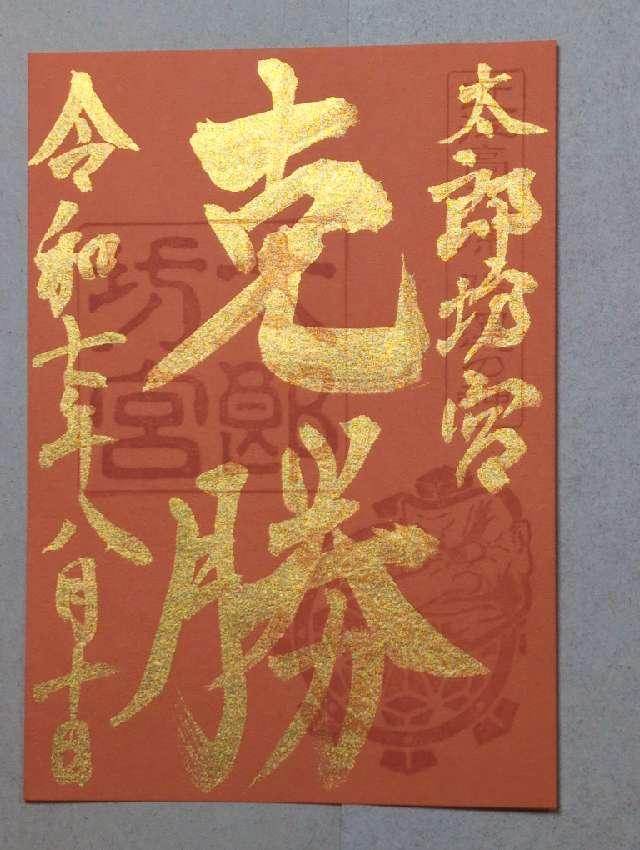 太郎坊宮
克勝
令和七年八月十日
太郎坊宮